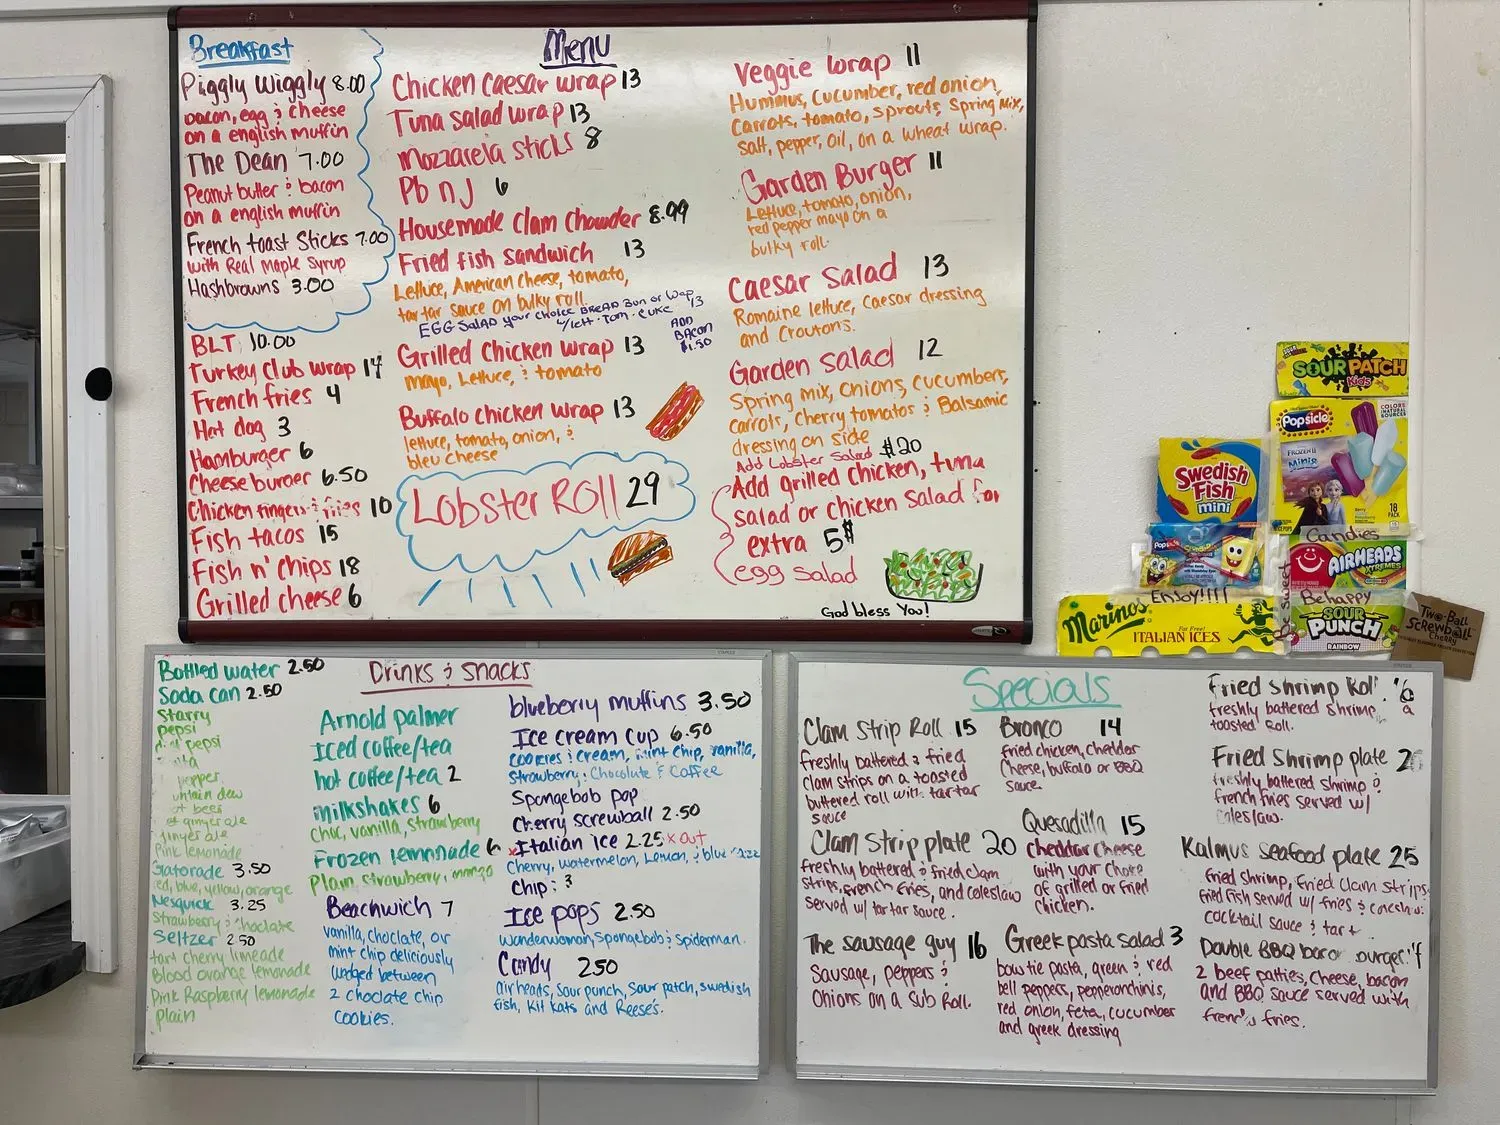 Breakfast
Piggly Wiggly 8.00
bacon, egg & cheese
on a english muffin
The Dean 7.00
Peanut butter & bacon
on a english muffin
French toast Sticks 7.00
with Real Maple Syrup
Hashbrowns 3.00
BLT 10.00
Turkey Club wrap 14
French fries 4
Hot dog 3
Hamburger 6
Cheeseburger 6.50
Chicken fingers & fries 10
Fish tacos 15
Fish n' Chips 18
Grilled cheese 6
Menu
Chicken Caesar wrap 13
Tuna salad wrap 13
Mozzarela sticks 8
Pb n J 6
Housemade clam chowder 8.99
Fried fish sandwich 13
Lettuce, American Cheese, tomato,
tartar sauce on bulky roll.
EGG SalAD your choice BREAD Bun or Wrap 13
w/lett. Tom. Cuke
ADD
BACON
$1.50
Grilled Chicken Wrap 13
mayo, Lettuce, & tomato
Buffalo chicken wrap 13
lettuce, tomato, onion, &
bleu cheese
Lobster Roll 29
Veggie wrap 11
Hummus, Cucumber, red onion,
Carrots, tomato, sprouts, Spring Mix,
salt, pepper, oil, on a wheat wrap.
Garden Burger 11
Lettuce, tomato, onion,
red pepper mayo on a
bulky roll.
Caesar Salad 13
Romaine lettuce, Caesar dressing
and Croutons.
Garden Salad 12
Spring mix, Onions, Cucumbers,
carrots, Cherry tomatos & Balsamic
dressing on side
Add Lobster Salad $20
Add grilled chicken, tuna
salad or chicken salad for
extra 5$
egg salad
God bless You!
SOUR PATCH
Kids
Popsicle
COLORS
NATURAL
SOURCES
FROZEN II
Minis
18
PACK
Swedish
Fish
mini
Candies
Popsicle
AIRHEADS
XTREMES
Enjoy!!!!
Be sweet
Be happy
Marino's
Fat Free!
ITALIAN ICES
SOUR
PUNCH
RAINBOW
Two-Ball
Screwball
Cherry
Bottled water 2.50
Soda can 2.50
Starry
pepsi
pepsi
pepper
dew
beer
gingerale
gingerale
Pink lemonade
Gatorade 3.50
red, blue, yellow, orange
Nesquick 3.25
Strawberry & Choclate
Seltzer 2.50
tart cherry limeade
Blood orange lemonade
Pink Raspberry lemonade
plain
Drinks & snacks
Arnold palmer
Iced coffee/tea
hot coffee/tea 2
milkshakes 6
choc, vanilla, strawberry
Frozen lemonade 6
Plain, Strawberry, mango
Beachwich 7
vanilla, choclate, or
mint chip deliciously
wedged between
2 choclate chip
cookies.
blueberry muffins 3.50
Ice cream cup 6.50
cookies & cream, mint chip, vanilla,
Strawberry, Chocolate & Coffee
Spongebob pop
Cherry screwball 2.50
x Italian ice 2.25 x Out
Cherry, watermelon, Lemon, & blue
Chips 3
Ice pops 2.50
Wonderwoman, Spongebob & Spiderman.
Candy 2.50
airheads, Sour punch, Sour patch, swedish
fish, Kit Kats and Reese's.
Specials
Clam Strip Roll 15
freshly battered & fried
clam strips on a toasted
buttered roll with tartar
sauce
Clam Strip plate 20
freshly battered & fried clam
strips, french fries, and coleslaw
served w/ tartar sauce.
The sausage guy 16
Sausage, peppers &
Onions on a Sub Roll.
Bronco 14
fried chicken, cheddar
Cheese, buffalo or BBQ
Sauce.
Quesadilla 15
cheddar cheese
with your choice
of grilled or fried
chicken.
Greek pasta salad 3
bowtie pasta, green & red
bell peppers, pepperonchinis,
red onion, feta, cucumber
and greek dressing
Fried Shrimp Roll
freshly battered shrimp a
toasted Roll.
Fried Shrimp plate
freshly battered shrimp &
french fries served w/
coleslaw.
Kalmus Seafood plate 25
fried shrimp, fried clam strips,
fried fish served w/ fries &
cocktail sauce &
Double BBQ
2 beef patties, cheese, bacon
and BBQ sauce served with
french fries.